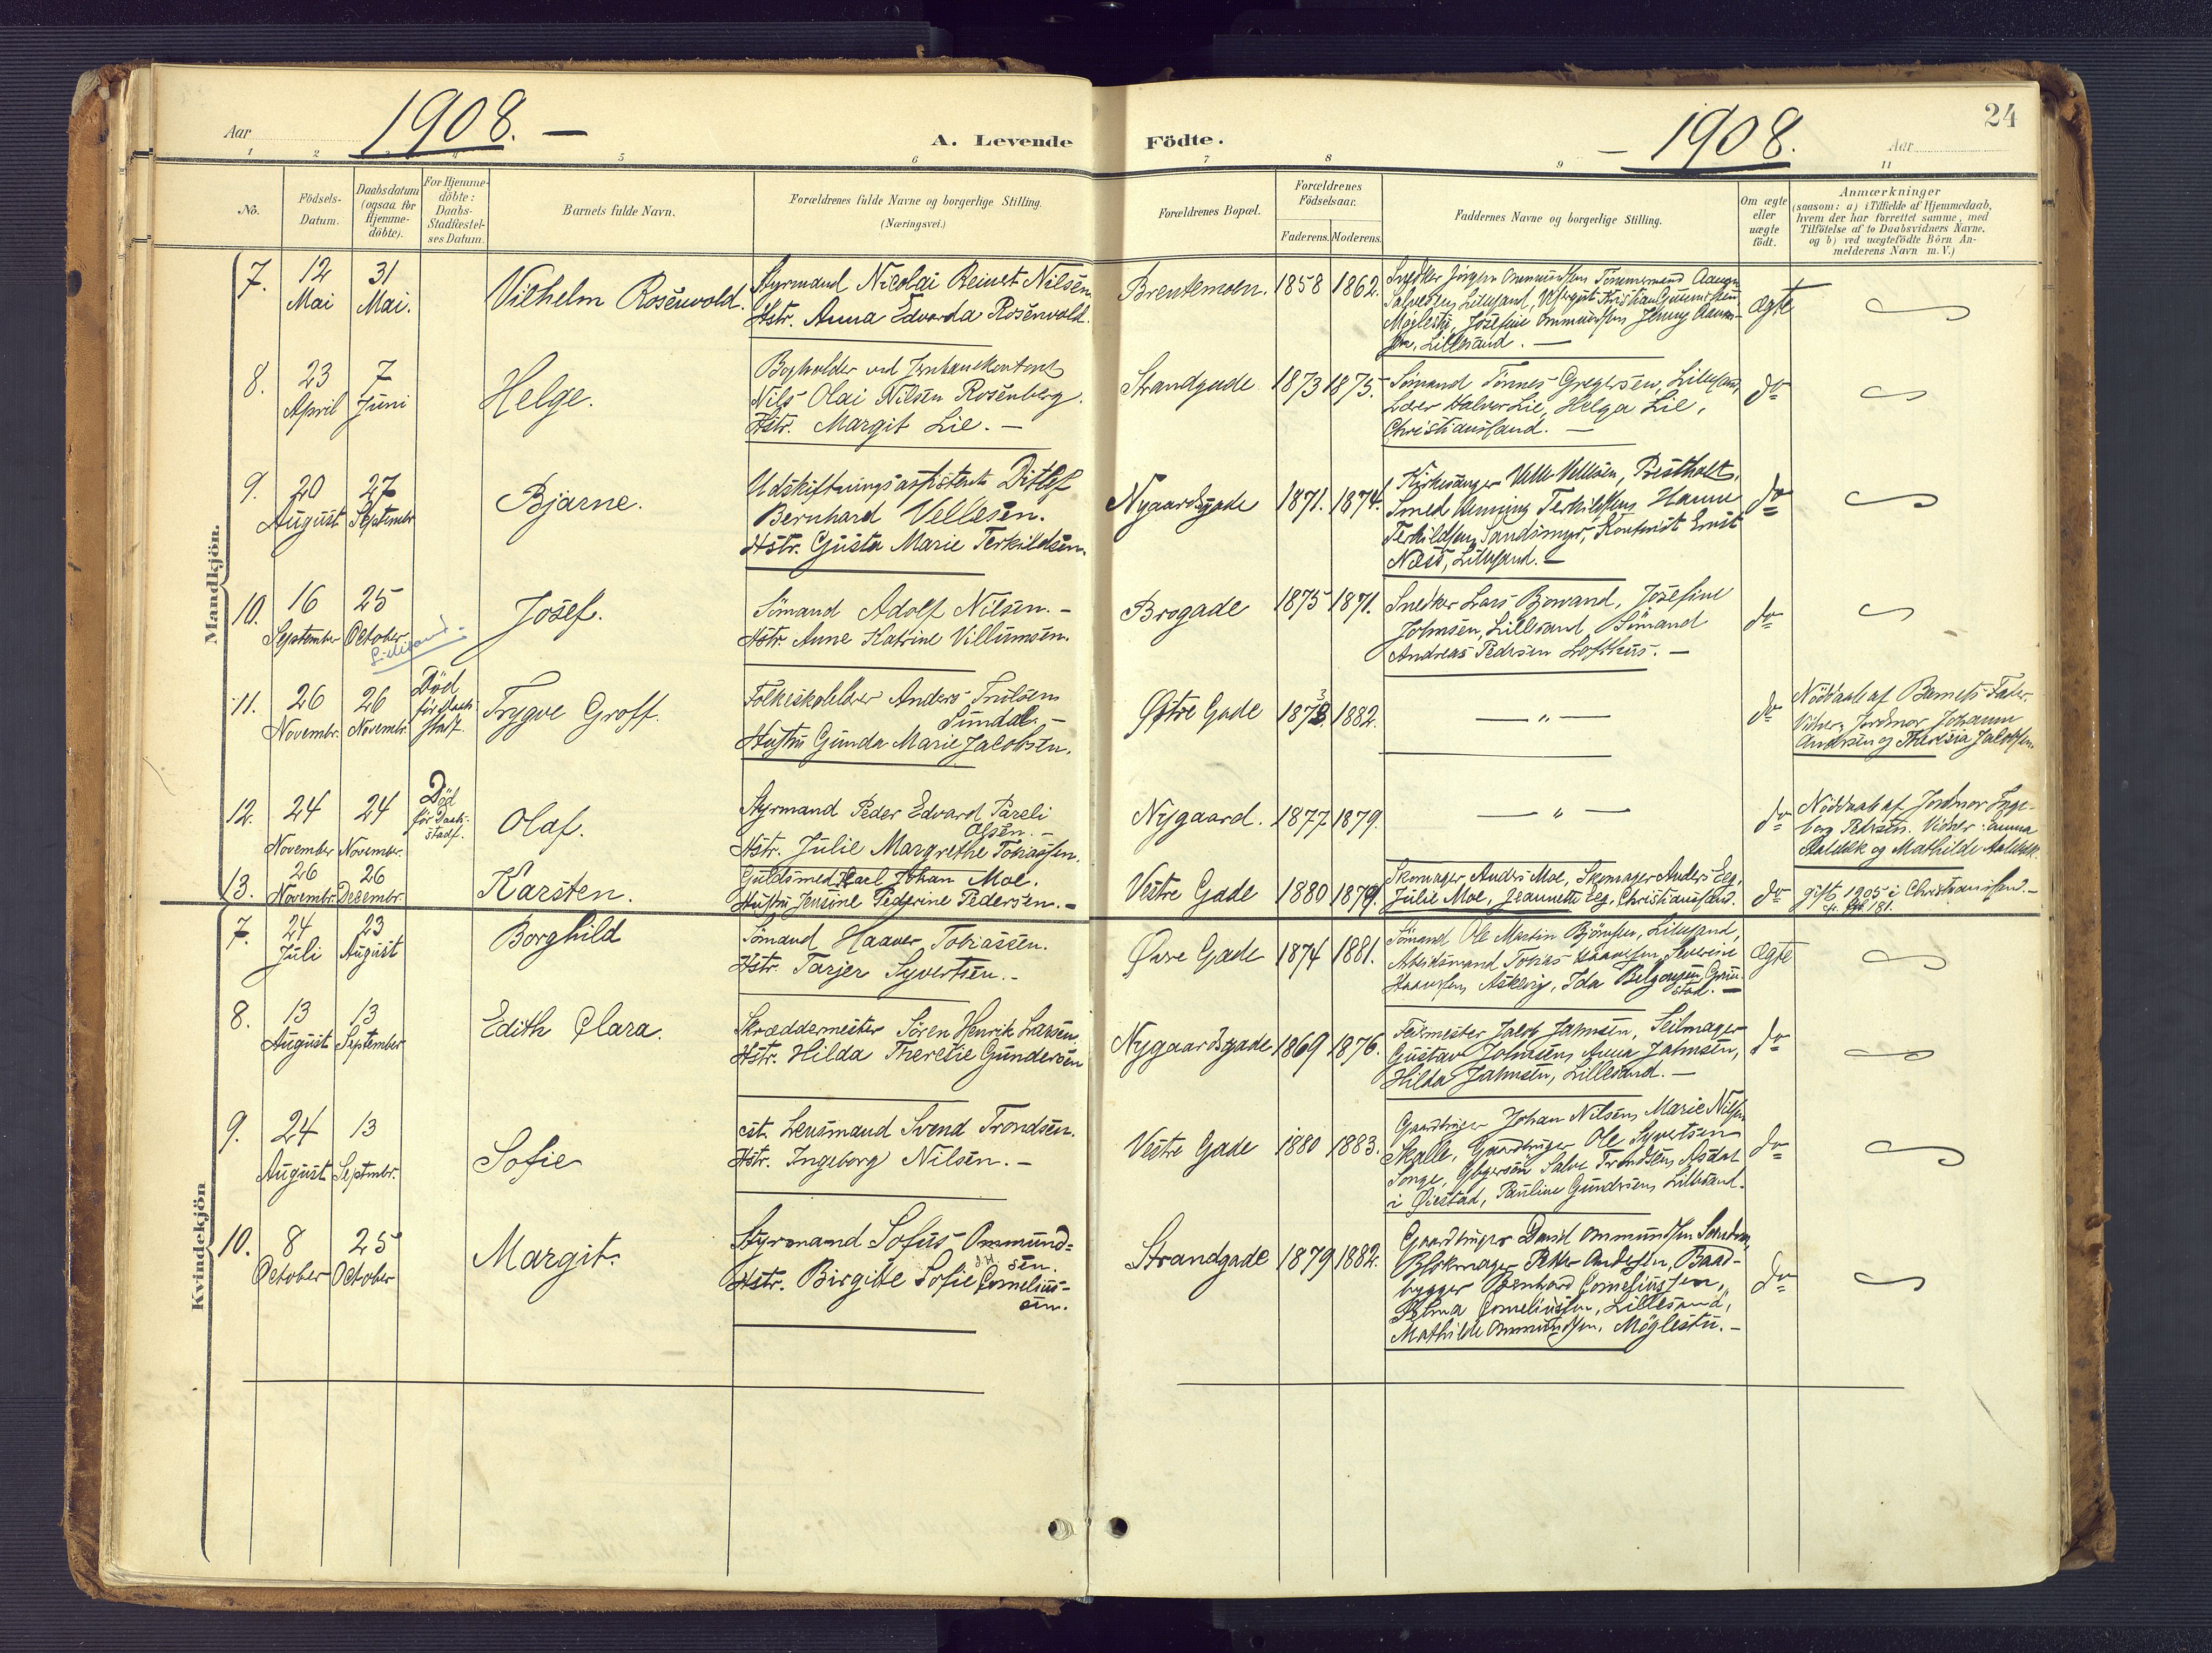 Aar 1908. —
A. Levende
Födte.
— 1908.
Aar
24
1 2 3 4 5 6 7 8 9 11
No.
Födsels-
Datum.
Daabsdatum
(ogsaa for
Hjemme-
döbte).
For Hjemme-
döbte:
Daabs-
Stadfæstel-
ses Datum.
Barnets fulde Navn.
Forældrenes fulde Navne og borgerlige Stilling.
(Næringsvei.)
Forældrenes Bopæl.
Forældrenes
Födselsaar.
Faderens. Moderens.
Faddernes Navne og borgerlige Stilling.
Om ægte
eller
uægte
födt.
Anmærkninger
(saasom: a) i Tilfælde af Hjemmedaab,
hvem der har forrettet samme, med
Tilföielse af to Daabsvidners Navne,
og b) ved uægtefödte Börn An-
melderens Navn m. V.)
Mandkjön.
7.
12
Mai
31
Mai.
Vilhelm Rosenvold.
Styrmand Nicolai Reinert Nilsen
Hstr. Anna Edvarda Rosenvold.
Brentemoen.
1858
1862.
Snedker Jörgen Ommundsen Tömmermand
Lillesand, Kristian
Möglestu, Josefine Ommundsen Jenny
Lillesand. —
Ægte
8.
23
April
7
Juni
Helge.
Bogholder ved Jernbanekontoret
Nils Olai Nilsen Rosenberg.
Hstr. Margit Lie. —
Strandgade
1873
1875.
Sömand Tönnes Gregersen, Lillesand,
Lærer Halvor Lie, Helga Lie,
Christianssand. —
do
9.
20
August
27
Septembr
Bjarne.
Udskiftningsassistent Ditlef
Bernhard Vellesen.
Hstr. Gusta Marie Terkildsen.
Nygaardsgade
1871.
1874.
Kirkesanger Velle Vellesen,
Smed Henning Terkildsen, Hanne
Terkildsen, Sandsmyr, Kontorist Ernst
Næss, Lillesand. —
do
10.
16
September
25
October.
Lillesand.
Josef.
Sömand Adolf Nilsen. —
Hstr. Anne Katrine Villumsen.
Brogade
1875
1871.
Snedker Lars Bjorvand, Josefine
Johnsen, Lillesand Sömand
Andreas Pedersen Lofthus. —
do
11.
26
Novembr.
26
Novembr.
Död
för Daab-
stadf.
Trygve Groff.
Folkeskolelærer Anders Trulsen
Sundal. —
Hustru Gunda Marie Jacobsen.
Østre Gade
1873
1882.
— " —
do
Nöddaab af Barnets Fader.
Vidner: Jordmor Johanne
Andersen og Theresia Jacobsen.
12.
24
November
24
November.
Död
för Daab-
stadf.
Olaf.
Styrmand Peder Edvard Pareli
Olsen. —
Hstr. Julie Margrethe Tobiassen.
Nygaard.
1877
1879.
— " —
do
Nöddaab af Jordmor Inge-
borg Petersen. Vidner: Emma
og Mathilde
13.
26
Novembr.
26
Decembr.
Karsten.
Guldsmed Karl Johan Moe.
Hustru Jensine Pedrine Pedersen. —
Vestre Gade
1880
1879.
Skomager Anders Moe, Skomager Anders Eeg,
Julie Moe, Jeannette Eeg, Christianssand.
do
gift 1905 i Christianssand. —
181.
Kvindekjön
7.
24
Juli
23
August
Borghild
Sömand Haaver Tobiassen.
Hstr. Tarjer Syvertsen. —
Øvre Gade
1874
1881.
Sömand Ole Martin Björnsen, Lillesand,
Arbeidsmand Tobias Haaversen, Severine
Haaversen, Askevig, Ida Belgonsen, Grim-
stad. —
Ægte
8.
13
August
13
September
Edith Clara.
Skræddermester Sören Henrik Larsen
Hstr. Hilda Theretie Gundersen
Nygaardsgade
1869
1876.
Jacob Jahnsen, Seilmager
Gustav Johnsen, Anna Jahnsen,
Hilda Jahnsen, Lillesand. —
do
9.
24
August
13
Septmbr.
Sofie
cst. Lensmand Svend Trondsen.
Hstr. Ingeborg Nilsen. —
Vestre Gade
1880
1883.
Gaardbruger Johan Nilsen, Marie Nilsen
Skalle, Gaardbruger Ole Syvertsen
Songe, Salve Trondsen, Asdal
i Øiestad, Pauline Gundersen, Lillesand.
do
10.
8
October
25
October
Margit.
Styrmand Sofus Ommund-
sen.
Hstr. Birgitte Sofie Cornelius-
sen.
Strandgade
1879
1882.
Gaardbruger David Ommundsen
Blokmager Petter Andersen, Baad-
bygger Bernhard Corneliussen,
Selma Corneliussen, Lillesand,
Mathilde Ommundsen, Möglestu. —
do